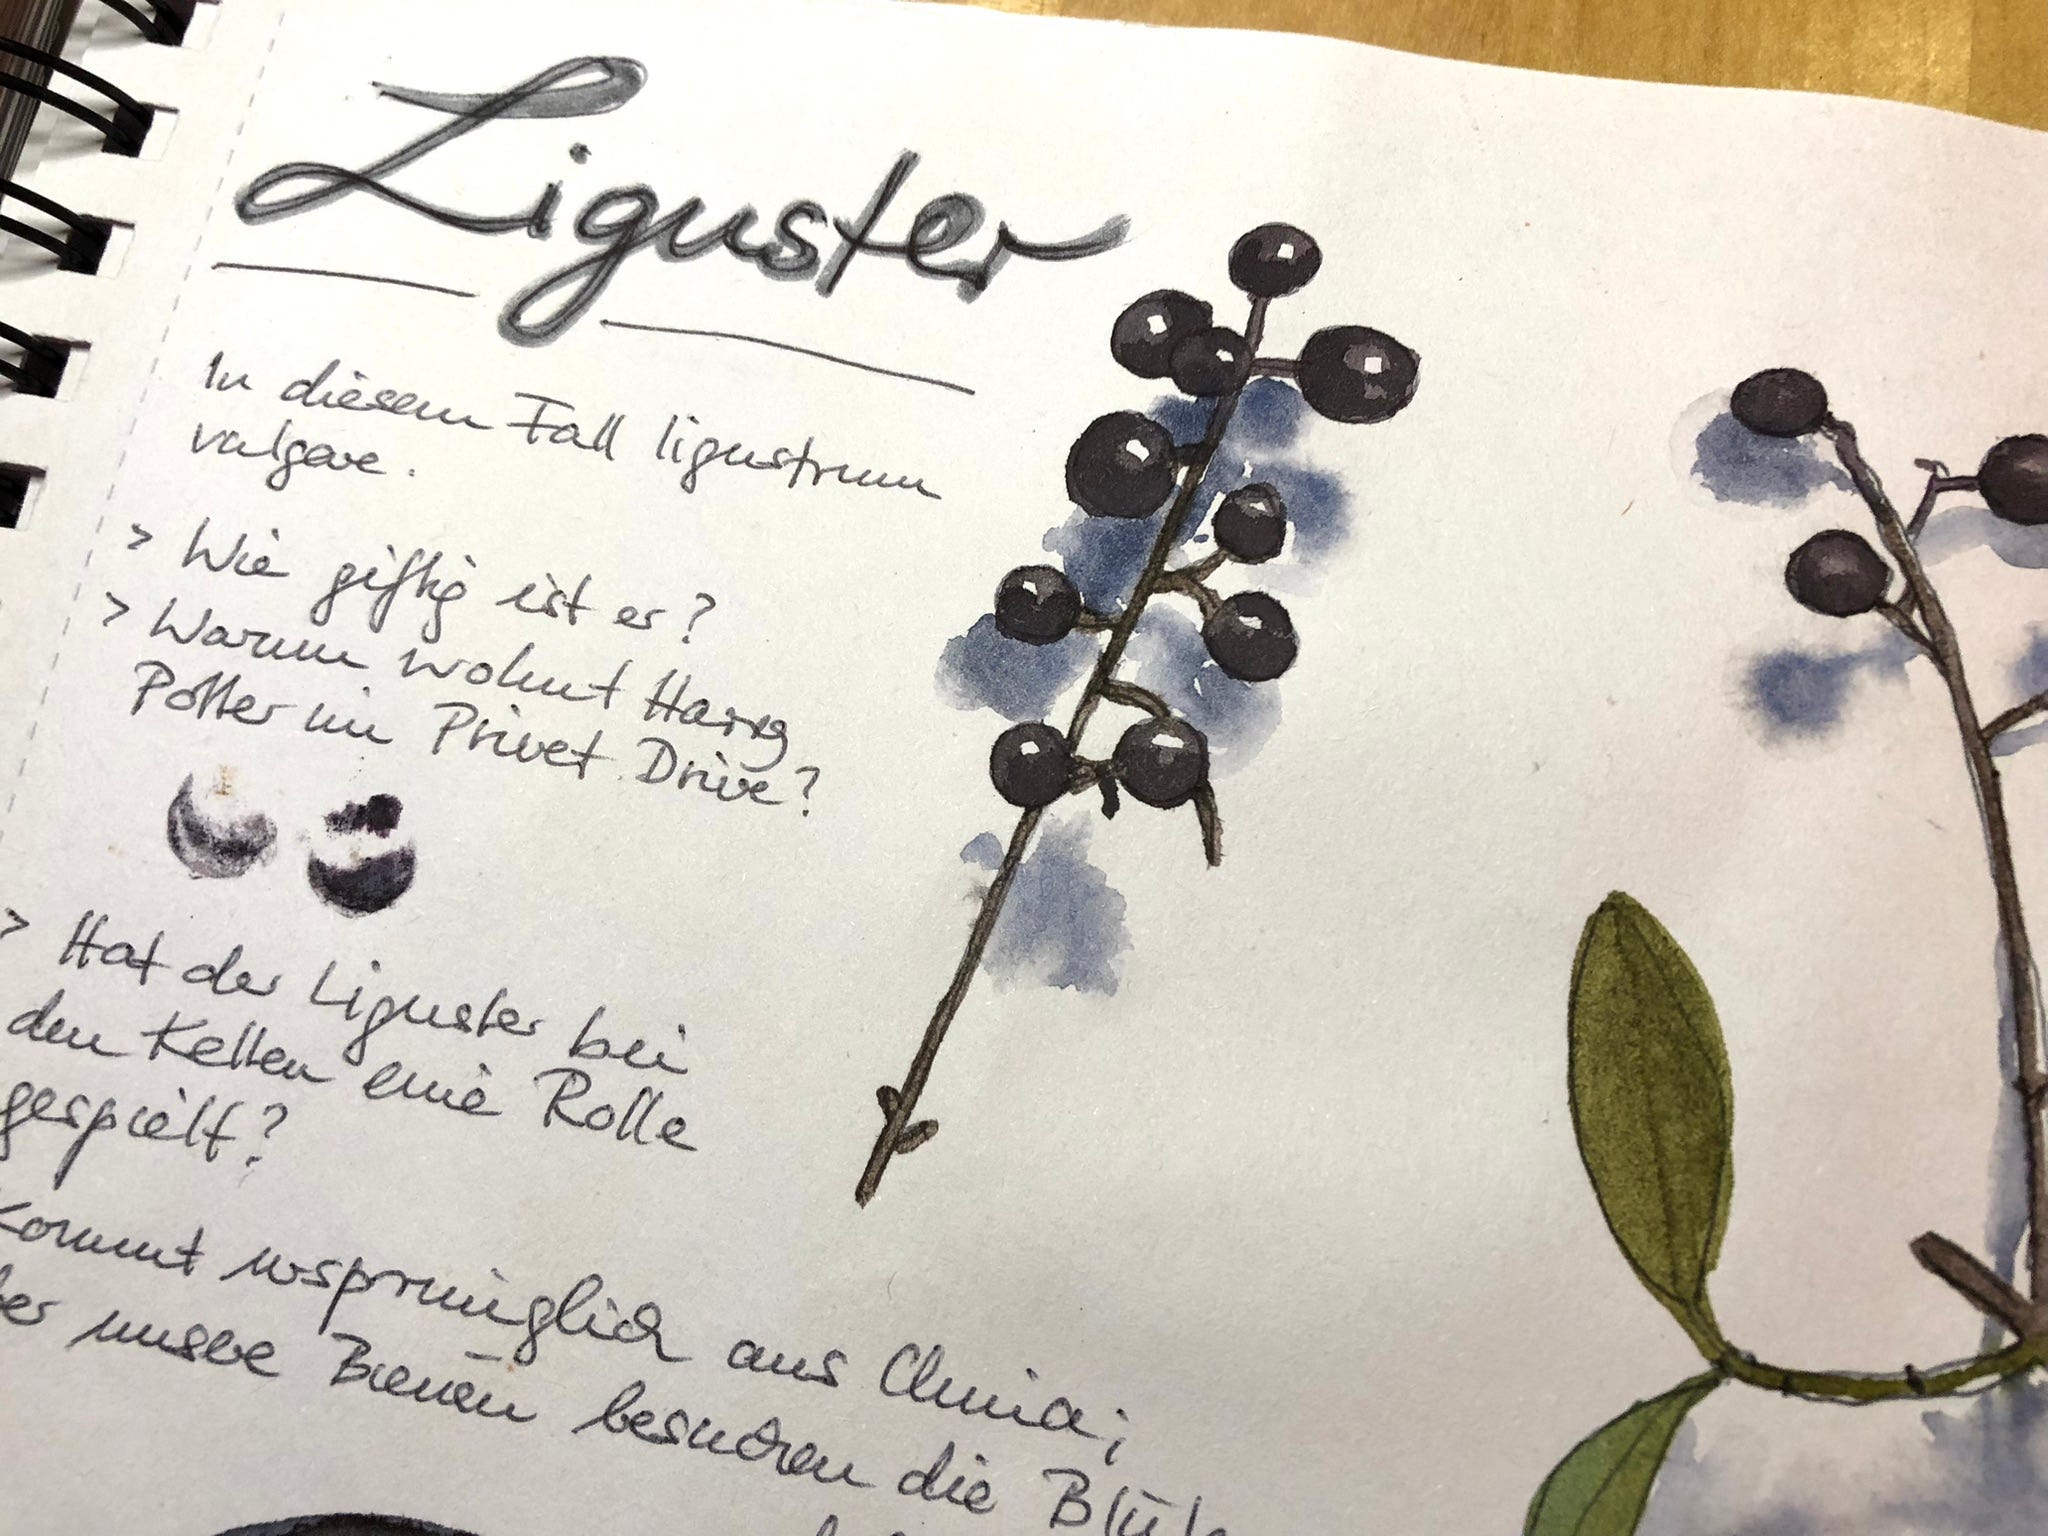 Liguster
In diesem Fall ligustrum
vulgare.
> Wie giftig ist er?
> Warum wohnt Harry
Potter im Privet Drive?
> Hat der Liguster bei
den Kelten eine Rolle
gespielt?
Kommt ursprünglich aus China;
unsere Bienen besuchen die